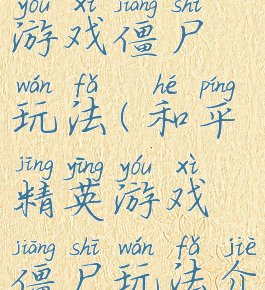 yóu xì jiāng shī
游戏僵尸
wán fǎ hé píng
玩法(和平
jīng yīng yóu xì
精英游戏
jiāng shī wán fǎ jiè
僵尸玩法介